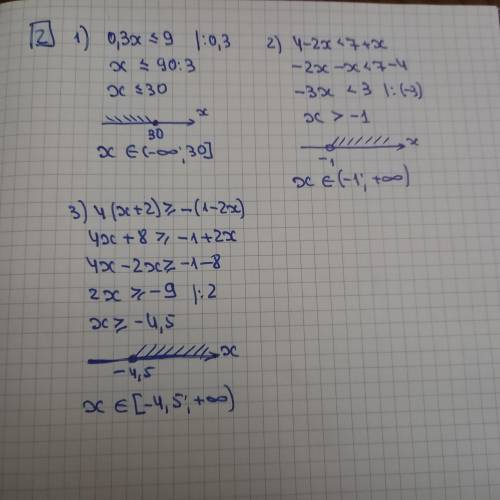 2 1) 0,3x ≤ 9 |:0,3
x ≤ 90:3
x ≤ 30
x
30
x ∈ (-∞; 30]
2) 4-2x < 7+x
-2x-x < 7-4
-3x < 3 |:(-3)
x > -1
x
-1
x ∈ (-1; +∞)
3) 4(x+2) ≥ -(1-2x)
4x+8 ≥ -1+2x
4x-2x ≥ -1-8
2x ≥ -9 |:2
x ≥ -4,5
x
-4,5
x ∈ [-4,5; +∞)